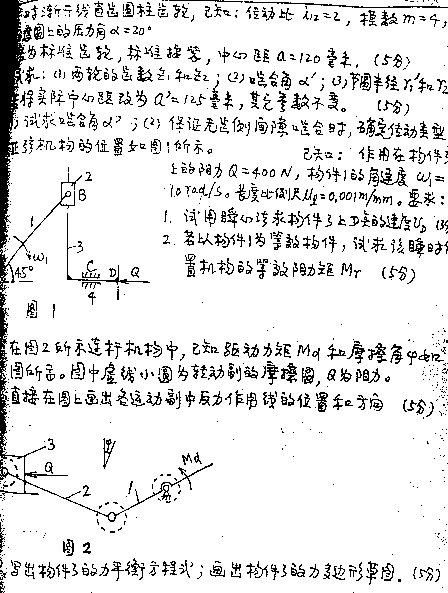 对渐开线直齿圆柱齿轮，已知：传动比 i₁₂=2，模数 m=4，
圆上的压力角 α=20°
为标准齿轮，标准安装，中心距 a=120毫米．(5分)
求：(1) 两轮的齿数 z₁和z₂；(2) 啮合角 α'；(3) 节圆半径 r₁'和 r₂'
将实际中心距改为 a'=125毫米，其它参数不变。 (5分)
试求啮合角 α'；(2) 保证无齿侧间隙啮合时，确定传动类型
机构的位置如图1所示。 已知：作用在构件3
上的阻力 Q=400N，构件1的角速度 ω₁=
10 rad/s。长度比例尺 μℓ=0.001 m/mm。要求：
1. 试用瞬心法求构件3上D点的速度 U_D
2. 若以构件1为等效构件，试求该瞬时
置机构的等效阻力矩 Mr (5分)
2
B
1
3
ω₁
45°
C
D
Q
4
图 1
在图2所示连杆机构中，已知驱动力矩 Md 和摩擦角φ
图所示。图中虚线小圆为转动副的摩擦圆，Q为阻力。
直接在图上画出各运动副中反力作用线的位置和方向 (5分)
3
Q
φ
2
1
Md
图 2
写出构件3的力平衡方程式；画出构件3的力多边形草图．(5分)